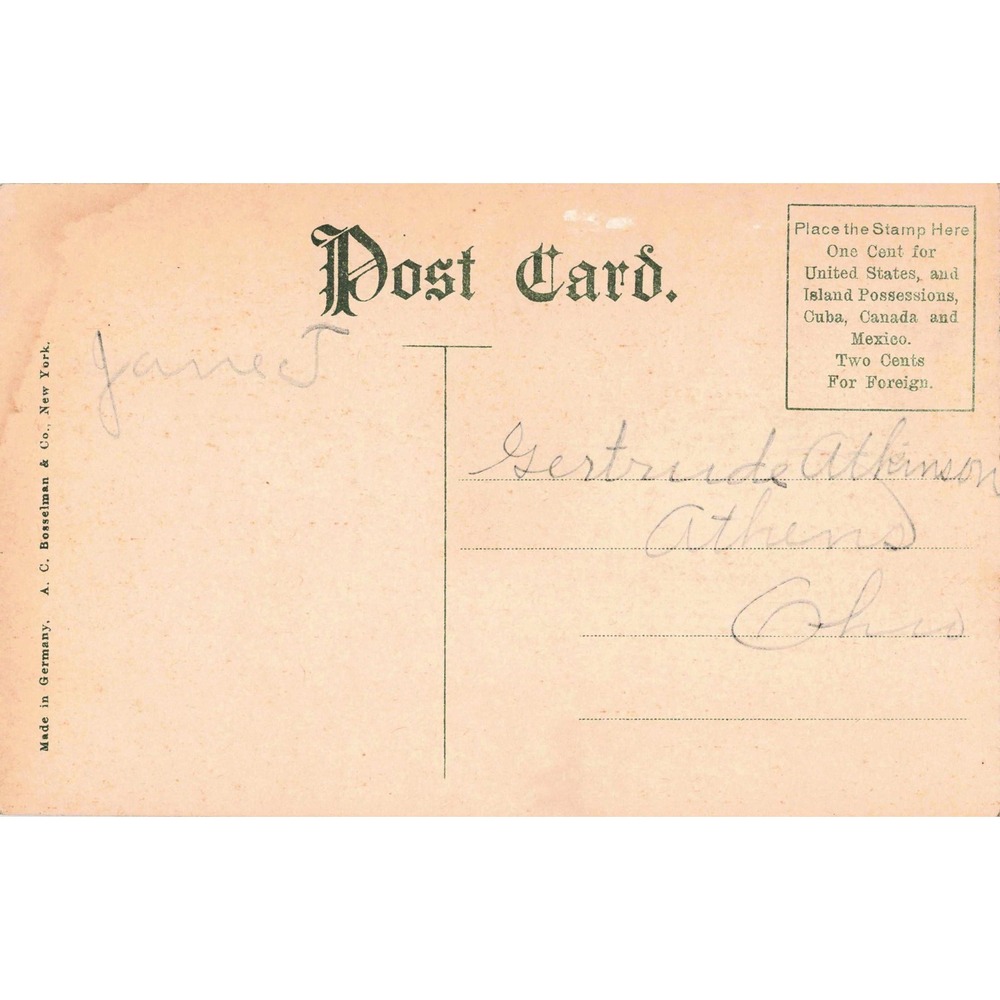 Post Card.
Place the Stamp Here
One Cent for
United States, and
Island Possessions,
Cuba, Canada and
Mexico.
Two Cents
For Foreign.
Made in Germany, A. C. Bosselman & Co., New York.
Gertrude Atkinson
Athens
Ohio